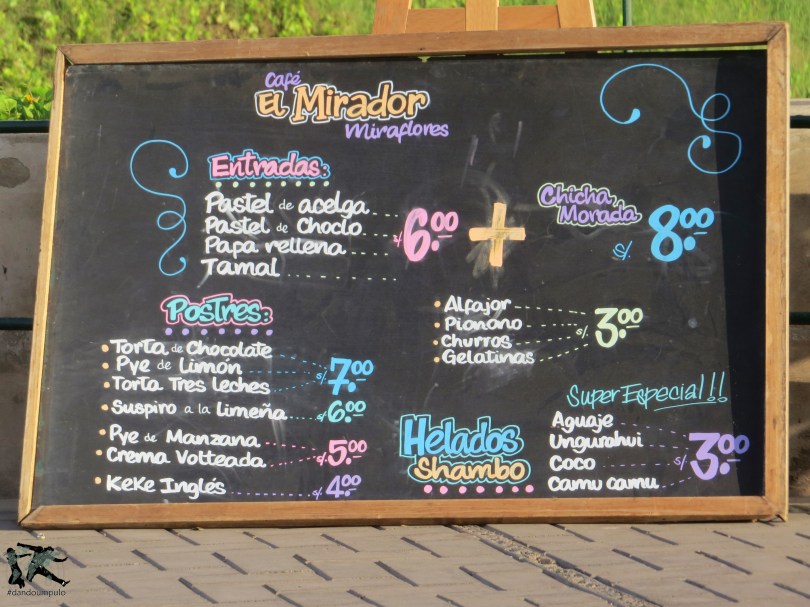 Café
El Mirador
Miraflores
Entradas:
Pastel de acelga
Pastel de Choclo
Papa rellena
Tamal
s/ 6.00
+
Chicha
Morada
s/. 8.00
Postres:
Torta de Chocolate
Pye de Limón
Torta Tres leches
s/. 7.00
Suspiro a la limeña
s/ 6.00
Pye de Manzana
Crema Volteada
s/ 5.00
Keke Inglés
s/. 4.00
Alfajor
Pionono
Churros
Gelatinas
s/. 3.00
Helados
Shambo
Super Especial!!
Aguaje
Ungurahui
Coco
Camu camu
s/ 3.00
#dandoumpulo